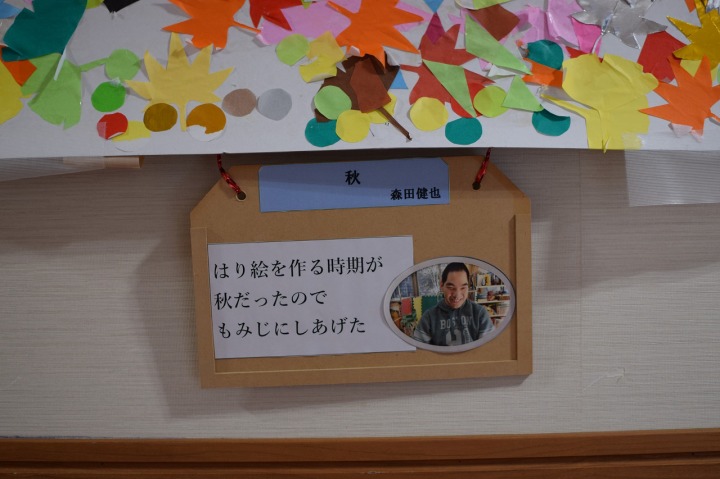 秋
森田健也
はり絵を作る時期が
秋だったので
もみじにしあげた
BOSTON